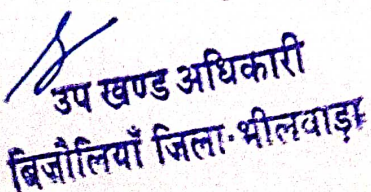 उप खण्ड अधिकारी
बिजोलियाँ जिला-भीलवाड़ा